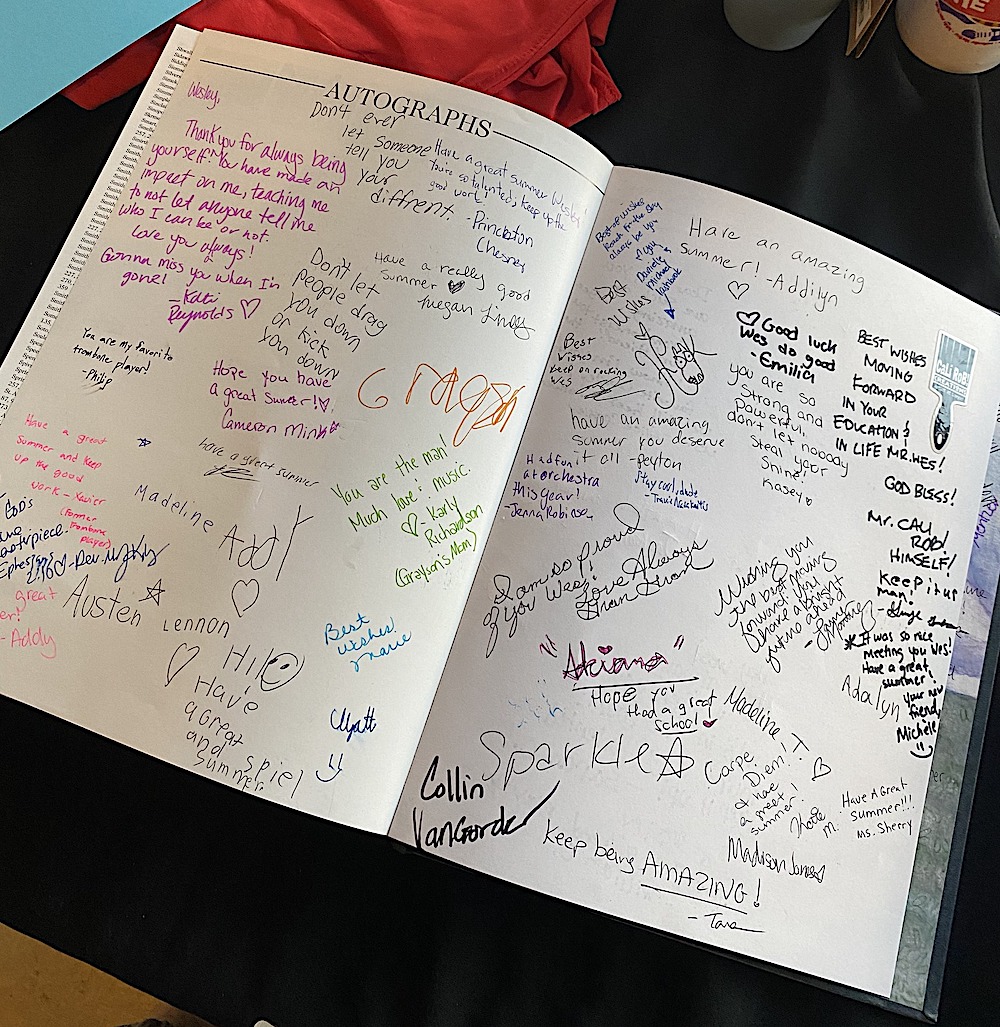 AUTOGRAPHS
Wesley,
Thank you for always being
yourself. You have made an
impact on me, teaching me
to not let anyone tell me
who I can be or not.
Love you always!
Gonna miss you when I'm
gone!
-Katti
Reynolds
Don't ever
let someone
tell you
your
different.
Have a great summer Wesley
You're so talented, keep up the
good work!
-Princeton
Chesney
Have a really good
summer
Don't let
people drag
you down
or kick
you down
You are my favorite
trombone player!
-Philip
Hope you have
a great Summer!
Cameron
Have a great
summer and keep
up the good
work - Xavier
(former
trombone
player)
have a great summer
You are the man!
Much love & music.
- Karly
Richardson
(Grayson's Mom)
Madeline
Addy
God's
-Rev.
great
- Addy
Austen
Lennon
Best
wishes
Marie
Hi
Have
a great
and
summer
Wyatt
Best wishes
Reach for the sky
always be you
Have an amazing
summer! -Addilyn
Best
wishes
Best
wishes
keep on rocking
Wes
Good luck
Wes do good
-Emilia
BEST WISHES
MOVING
FORWARD
IN YOUR
EDUCATION &
IN LIFE MR. WES!
GOD BLESS!
Mr. CALI
ROB!
HIMSELF!
Cali Rob
you are so
Strong and
Powerful,
don't let nobody
Steal your
Shine!
Kasey
have an amazing
summer you deserve
it all -peyton
Had fun
at orchestra
this year!
-Jenna Robinson
Stay cool, dude
I am so proud
of you Wes!
Love Always
Gran
Wishing you
the best moving
forward. You
have a bright
future ahead
Keep it up
man!
It was so nice
meeting you Wes!
Have a great
summer!
Your new
friend,
Michele
Adalyn
"Akiana"
Hope you
had a great
school
Madeline
Sparkle
Carpe
Diem!
& have
a great
summer!
Kate
M.
Have A Great
Summer!!!
Ms. Sherry
Collin
VanGorder
Madison Jones
Keep being AMAZING!
- Tara